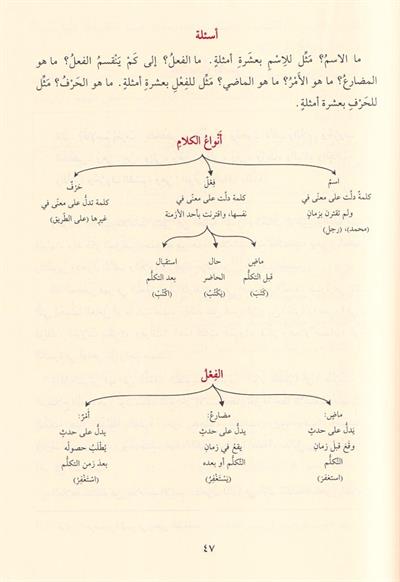 أسئلة
ما الاسمُ؟ مَثِّل للاِسْمِ بعشَرةِ أمثلةٍ. ما الفعلُ؟ إلى كَمْ يَنْقسمُ الفعلُ؟ ما هو
المضارعُ؟ ما هو الأَمْرُ؟ ما هو الماضي؟ مَثِّل للفِعْلِ بعشرةِ أمثلةٍ. ما الحَرْفُ؟ مَثِّل
للحَرْفِ بعشرة أمثلةٍ.
أَنْواعُ الكلامِ
اسمٌ فِعْلٌ حَرْفٌ
كلمةٌ دلّت على معنًى في كلمة دلّت على معنًى في كلمة تدلُّ على معنًى في
ولم تقترن بزمانٍ نفسها، واقترنت بأحد الأزمنة غيرِها (على الطّريق)
(محمد)، (رجل)
ماضٍ حال استقبال
قبل التكلُّم الحاضر بعد التكلُّم
(كَتَبَ) (يَكْتُبُ) (اكْتُبْ)
الفِعْلُ
ماضٍ: مضارعٌ: أمْرٌ:
يَدلُّ على حدثٍ يدلُّ على حدثٍ يدلُّ على حدثٍ
وقَع قبل زمان يقعُ في زمانِ يُطْلَبُ حصولُه
التَّكلُّم التَّكلُّم أو بعده بعدَ زمن التكلُّم
(استغفرَ) (يَسْتَغْفِرُ) (اسْتَغْفِرْ)
٤٧